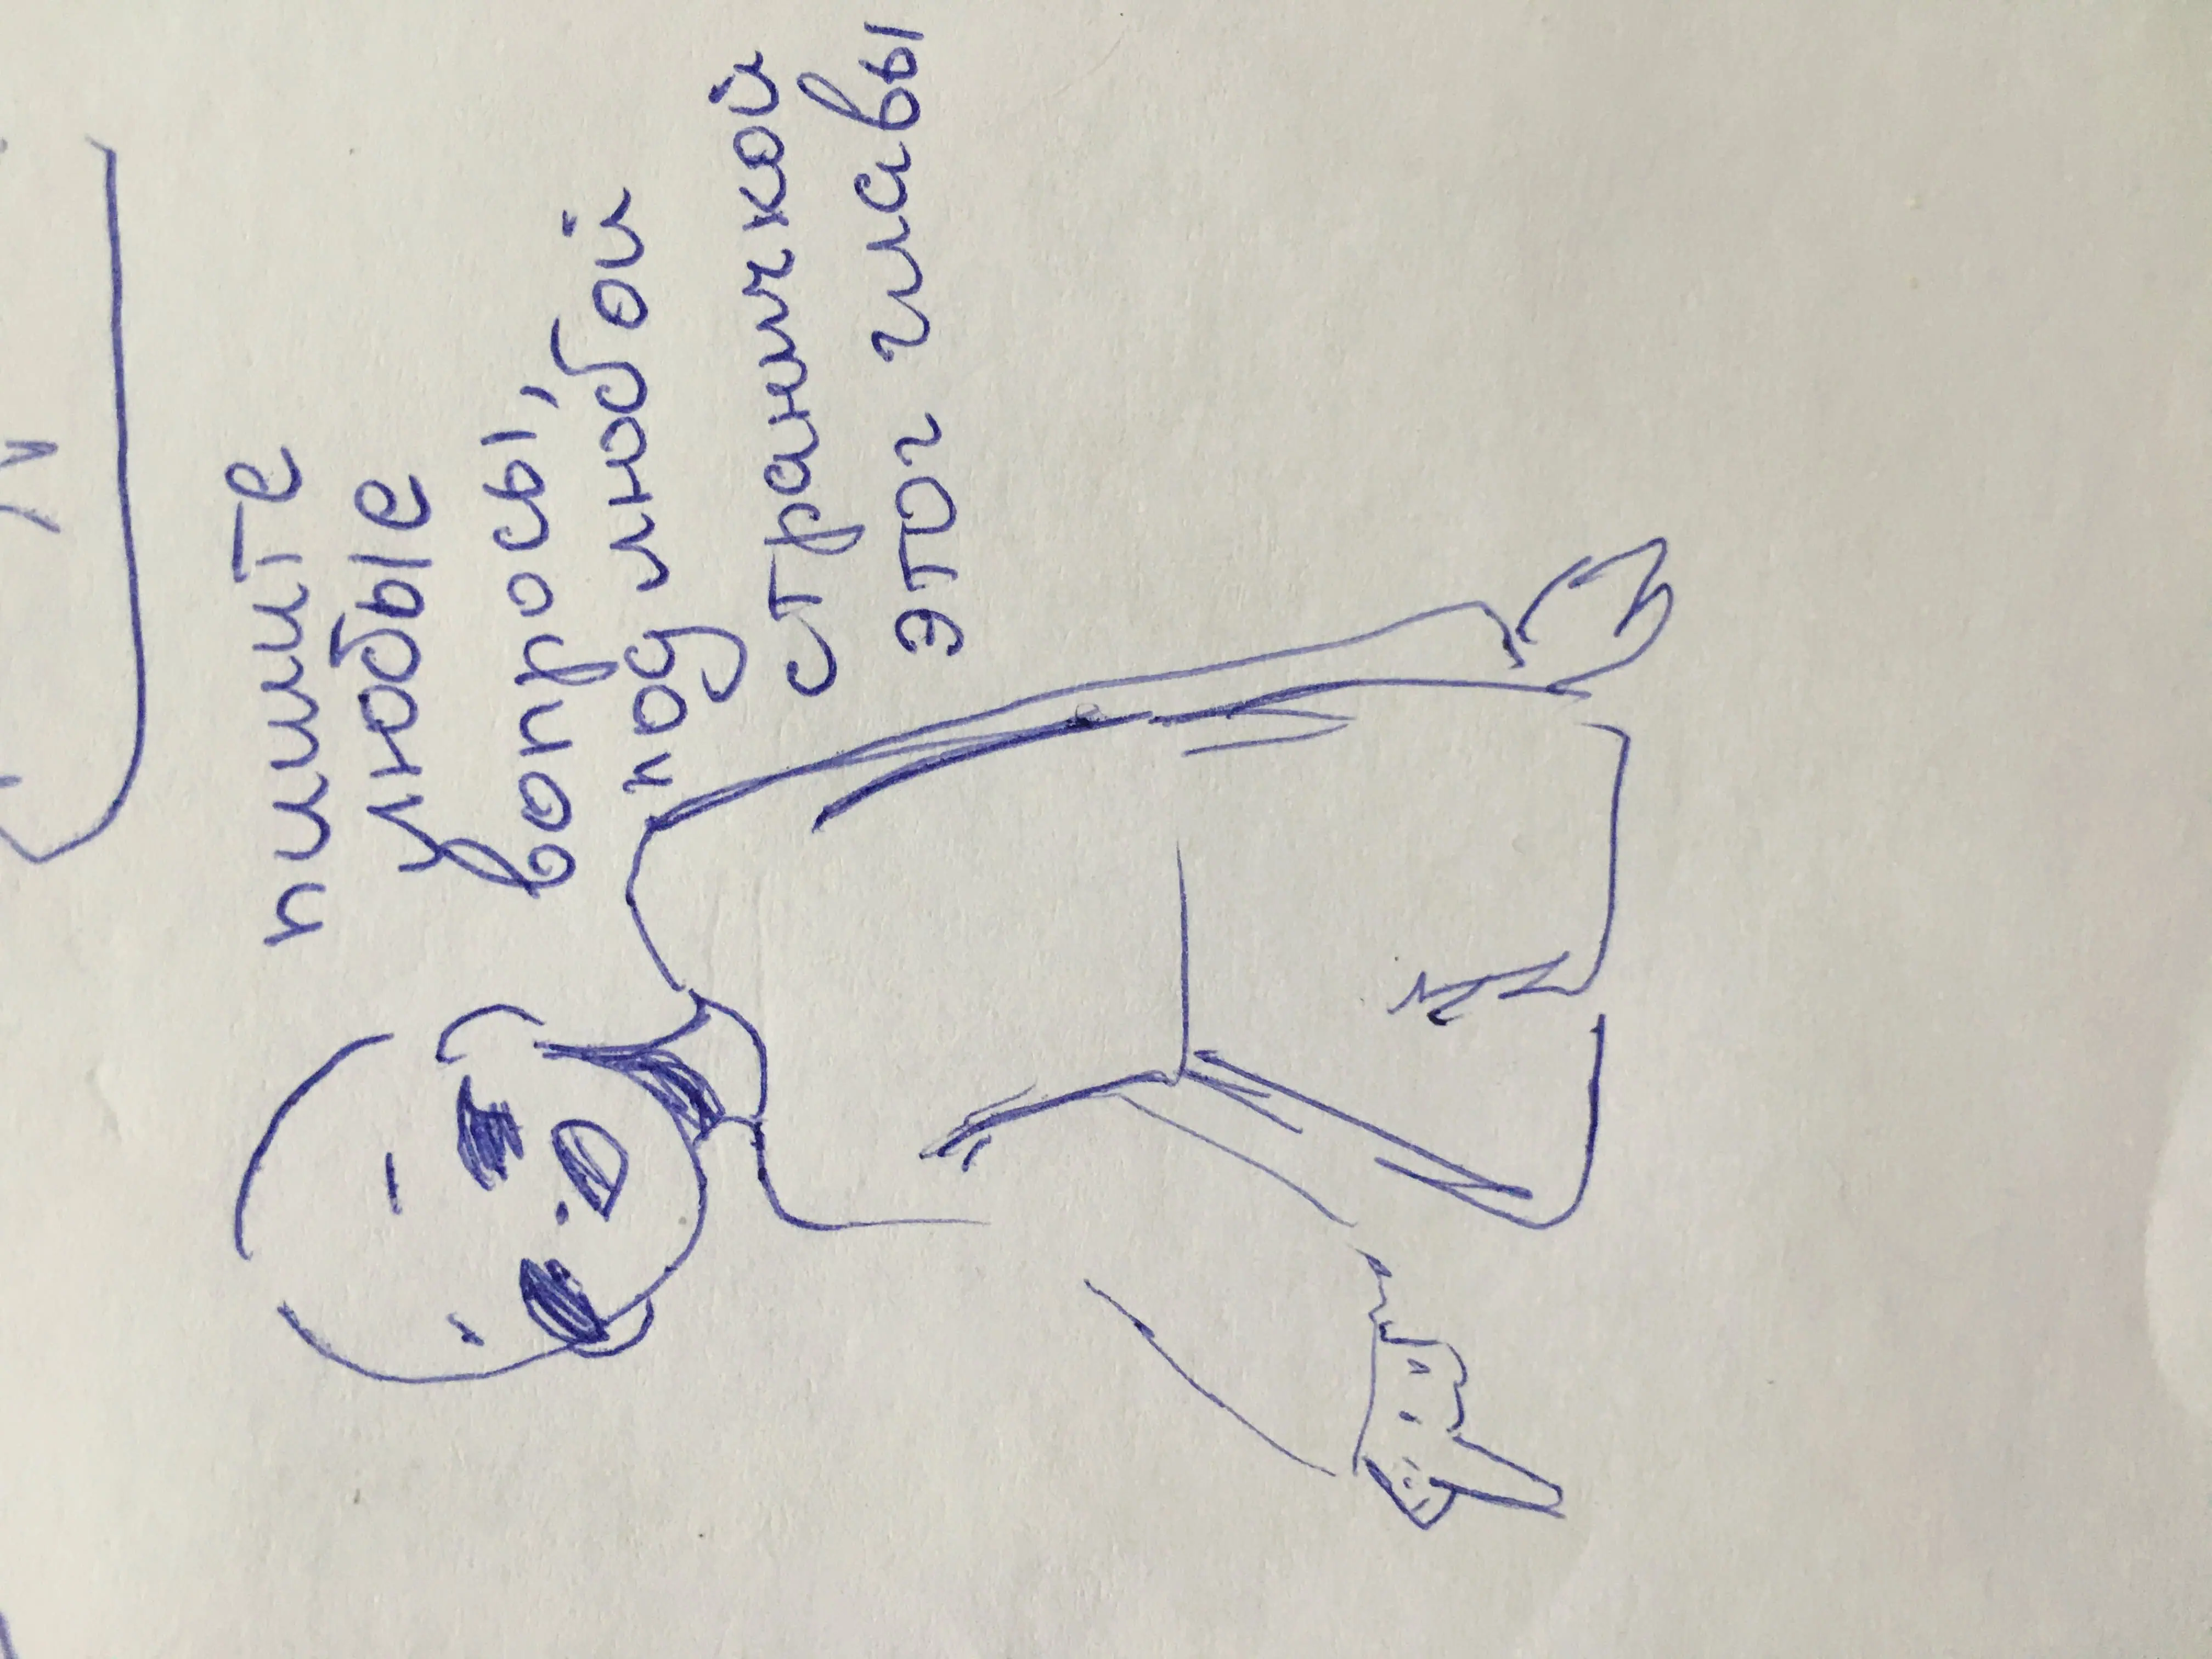 пишите
любые
вопросы,
под любой
страничкой
этог главы